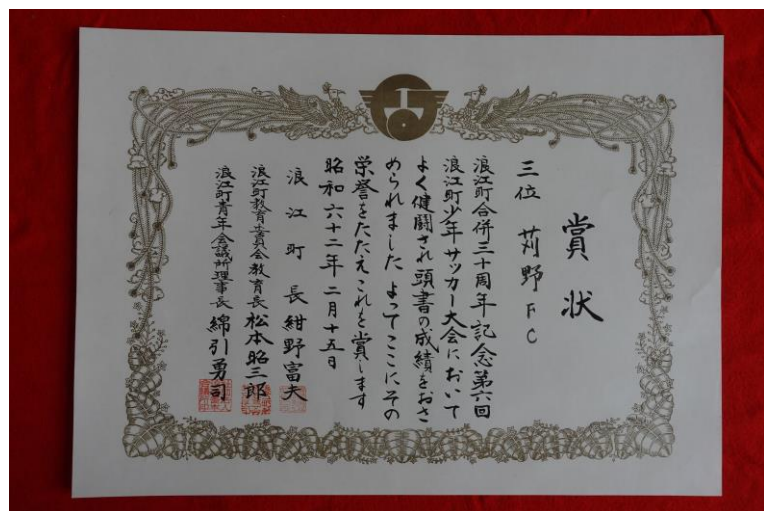 賞状
三位 苅野FC
浪江町合併三十周年記念第六回
浪江町少年サッカー大会において
よく健闘され頭書の成績をおさ
められました よってここにその
栄誉をたたえこれを賞します
昭和六十二年二月十五日
浪江町長 紺野富夫
浪江町教育委員会教育長 松本昭三郎
浪江町青年会議所理事長 綿引勇司